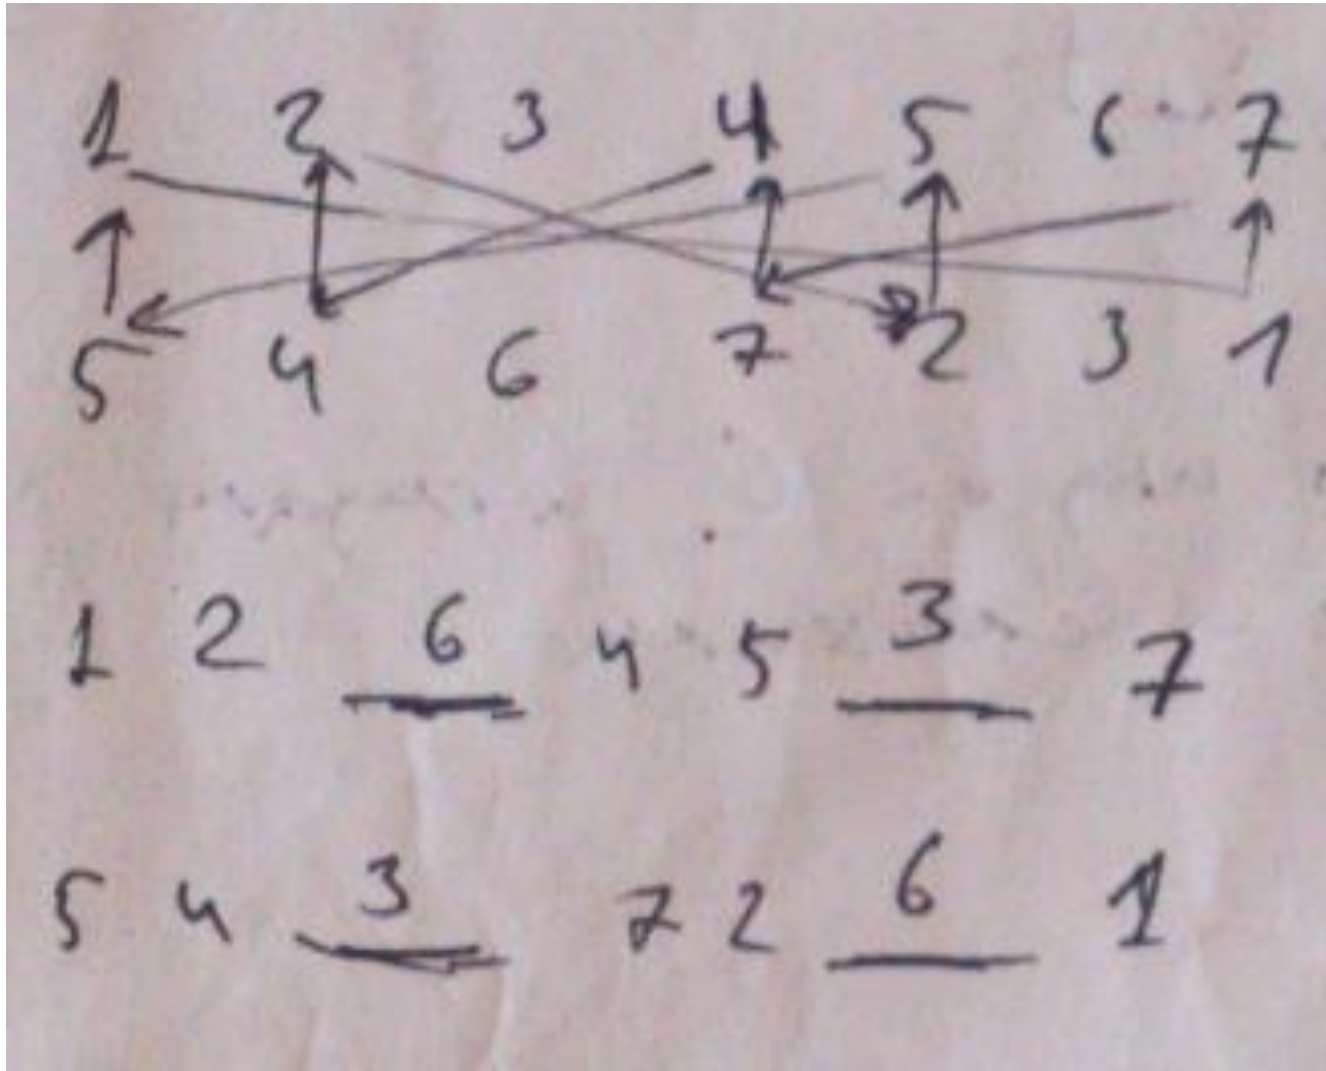 1 2 3 4 5 6 7
5 4 6 7 2 3 1
1 2 6 4 5 3 7
5 4 3 7 2 6 1